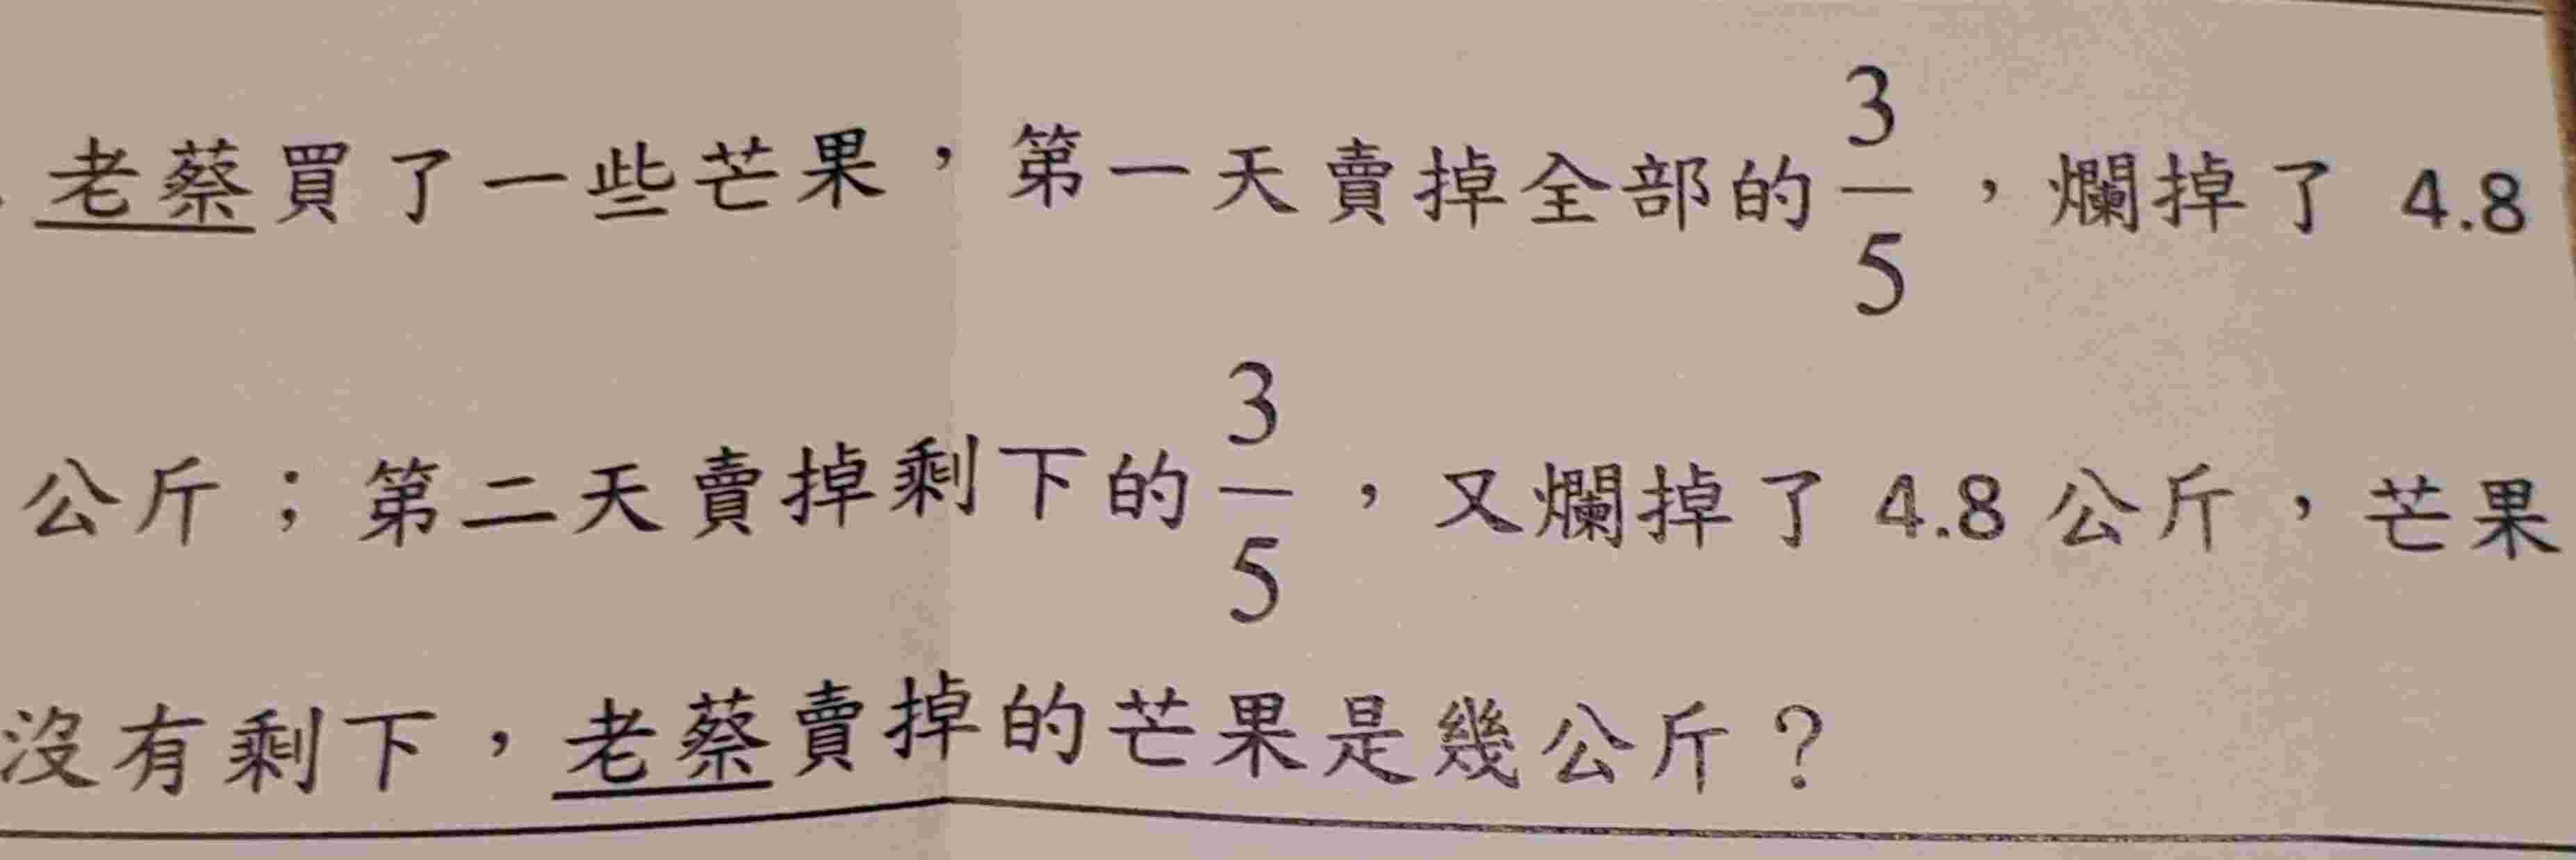 老蔡買了一些芒果，第一天賣掉全部的3/5，爛掉了 4.8
公斤；第二天賣掉剩下的3/5，又爛掉了 4.8 公斤，芒果
沒有剩下，老蔡賣掉的芒果是幾公斤？